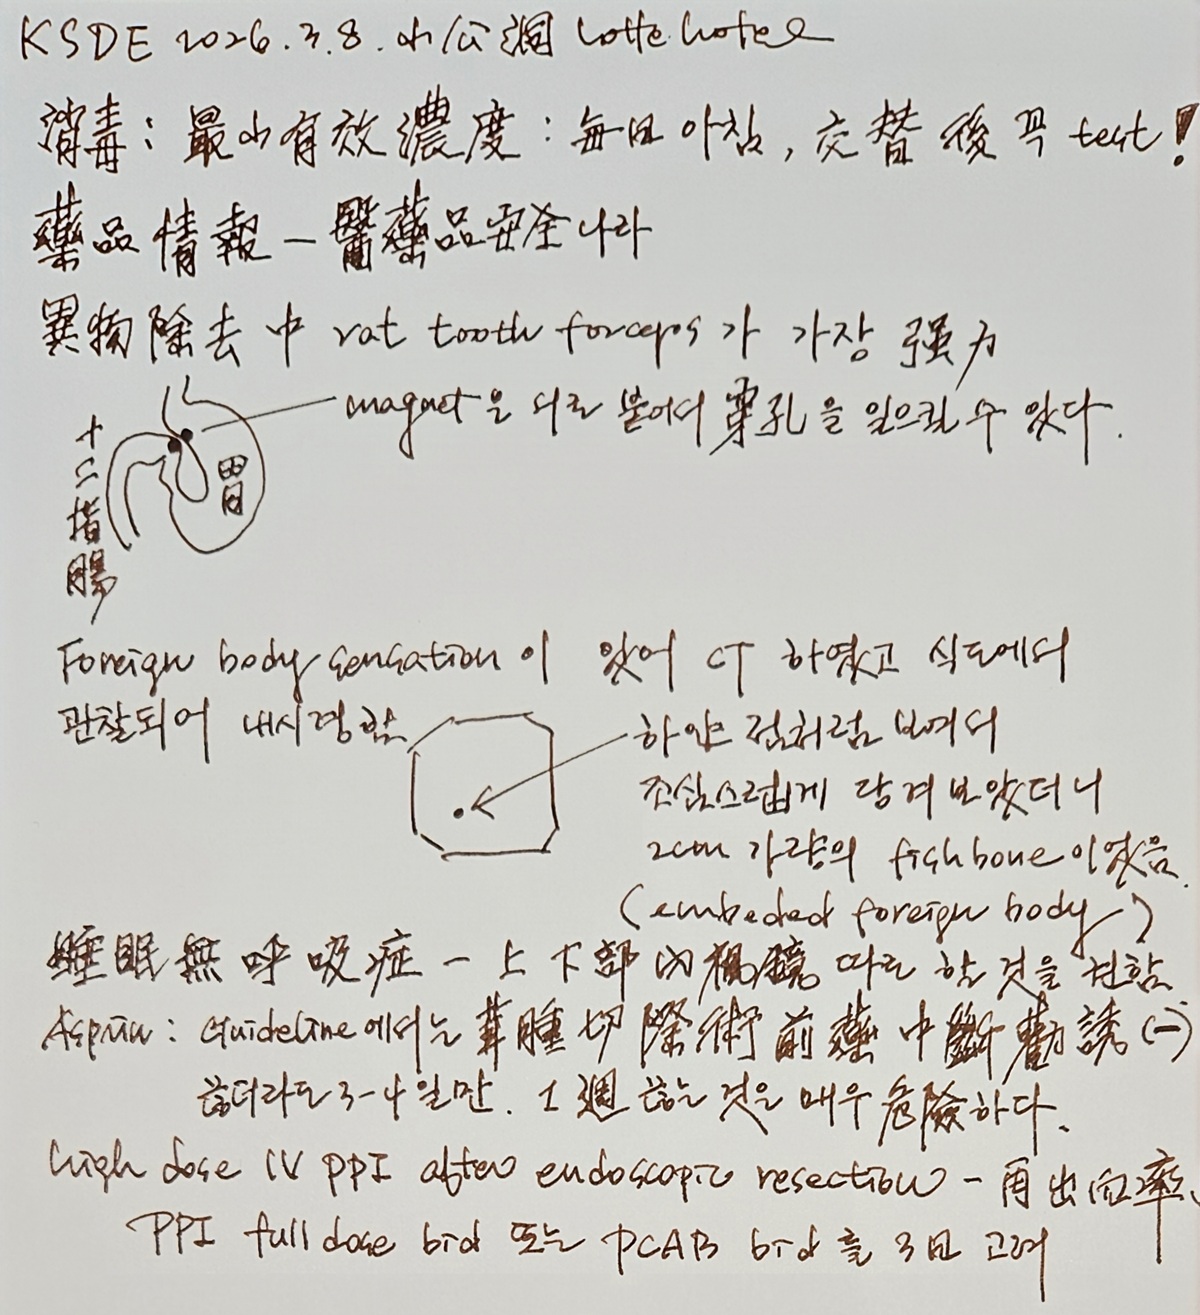 KSDE 2026.3.8. 小公洞 Lotte hotel
消毒: 最小有效濃度: 每日 아침, 交替 後 꼭 test!
藥品情報 - 醫藥品安全나라
異物除去 中 rat tooth forceps가 가장 强力
magnet은 서로 붙어서 穿孔을 일으킬 수 있다.
十二指腸
胃
Foreign body sensation이 있어 CT 하였고 식도에서
관찰되어 내시경함
하얀 점처럼 보여서
조심스럽게 당겨 보았더니
2cm 가량의 fishbone이었음.
(embeded foreign body)
睡眠無呼吸症 - 上下部內視鏡 따로 할 것을 권함
Aspirin: Guideline에서는 茸腫切除術前藥中斷勸誘(-)
끊더라도 3-4일만. 1週 끊는 것은 매우 危險하다.
high dose IV PPI after endoscopic resection - 再出血率
PPI full dose bid 또는 PCAB bid를 3日 고려